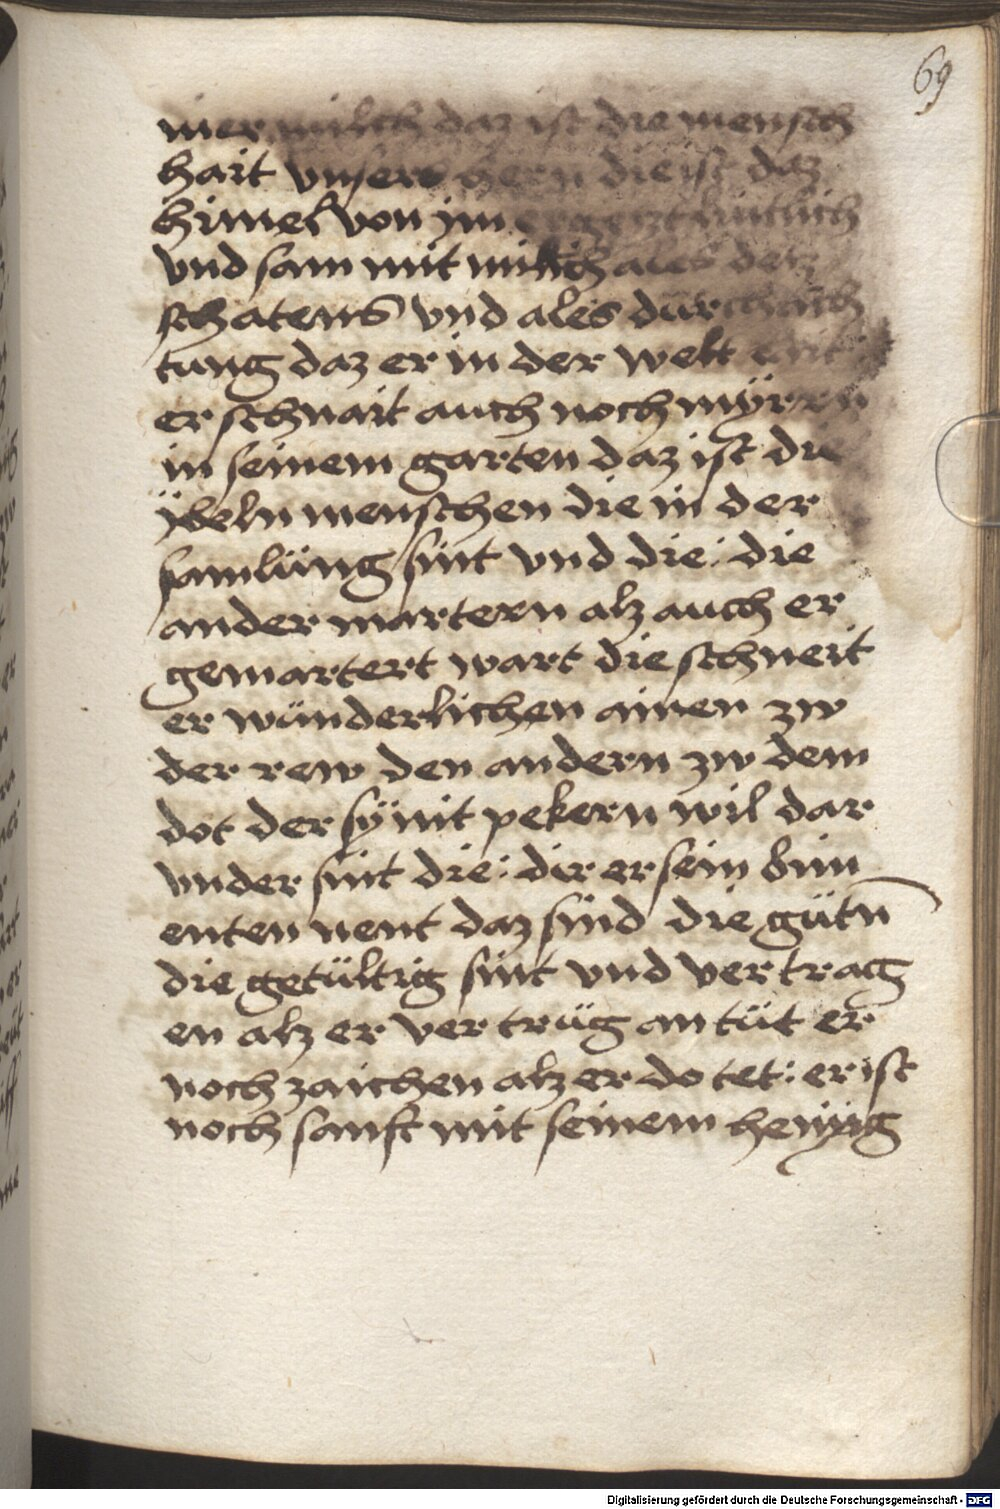 69
mer milch daz ist die mensch
hait vnsers hern die ist daz
himel von jm
vnd sam mit milich ales detz
schatens vnd ales durchäch
tung daz er in der welt
er schnait auch noch mÿrrn
in seinem garten daz ist die
ÿbeln menschen die in der
samlüng sint vnd die : die
ander martern alz auch er
gemartert wart die schneit
er wünderlichen ainen zw
der rew den andern zw dem
dot der sÿ nit pekern wil dar
vnder sint die : dir er sein
enten nent daz sind die gütn
die getültig sint vnd vertrag
en alz er vertrüg an tüt er
noch zaichen alz er do tet : er ist
noch sanft mit seinem
Digitalisierung gefördert durch die Deutsche Forschungsgemeinschaft - DFG